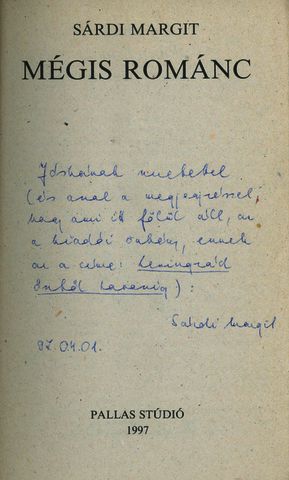 SÁRDI MARGIT
MÉGIS ROMÁNC
Jóskának szeretettel
(és azzal a megjegyzéssel,
hogy ami itt fölül áll, az
a kiadói önkény, ennek
az a címe: Leningrád
):
Sárdi Margit
97.04.01.
PALLAS STÚDIÓ
1997